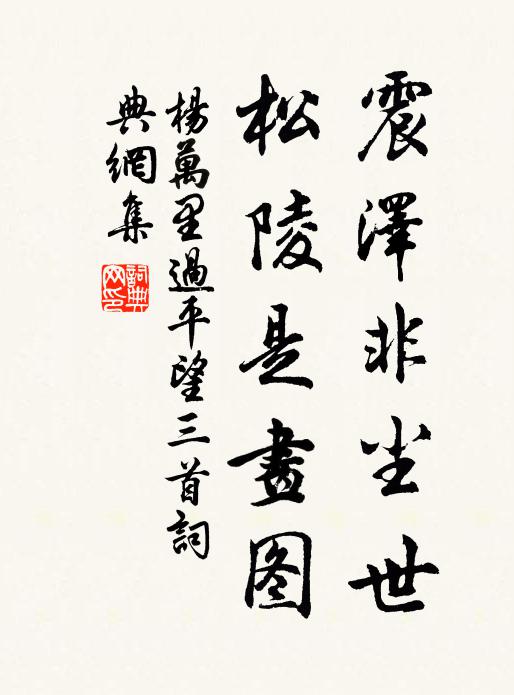 震澤非尘世
松陵是畫图
楊萬里過平望三首詞
典網集
詞典网印